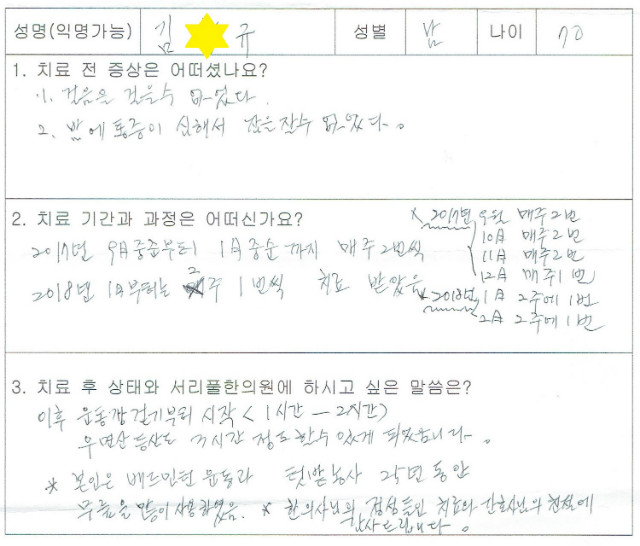 성명(익명가능) 김 규 성별 남 나이 70
1. 치료 전 증상은 어떠셨나요?
1. 걸음을 걸을수 없었다.
2. 밤에 통증이 심해서 잠을 잘수 없었다.
2. 치료 기간과 과정은 어떠신가요?
2017년 9月중순부터 1月중순까지 매주 2번씩
2018년 1月부터는 2주 1번씩 치료 받았음
* 2017년 9월 매주2번
10月 매주2번
11月 매주2번
12月 매주1번
* 2018년 1月 2주에 1번
2月 2주에 1번
3. 치료 후 상태와 서리풀한의원에 하시고 싶은 말씀은?
이후 운동장 걷기부터 시작 < 1시간 - 2시간)
우면산 등산도 3시간 정도 할수 있게 되었습니다.
* 본인은 배드민턴 운동과 텃밭농사 25년 동안
무릎을 많이 사용하였음. * 한의사님의 정성들인 치료와 간호사님의 친절에
감사드립니다.